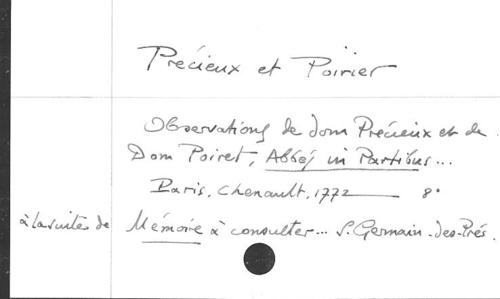 Précieux et Poirier
Observations de dom Précieux et de
Dom Poiret, Abbés in Partibus...
Paris, Chenault, 1772 — 8°
à la suite de Mémoire à consulter... S. Germain-des-Prés.